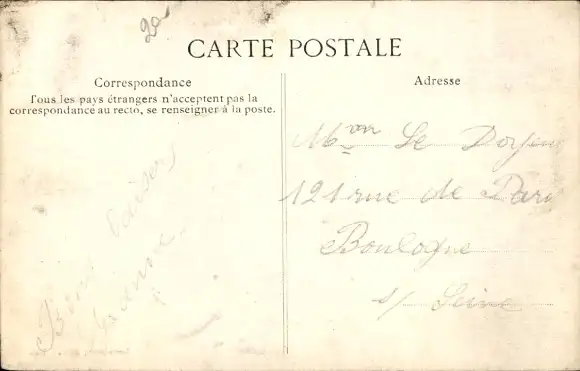 20
CARTE POSTALE
Correspondance
Tous les pays étrangers n'acceptent pas la
correspondance au recto, se renseigner à la poste.
Bons baisers
Jeanne
Adresse
Le Doyen
121 rue de Paris
Boulogne
s/ Seine